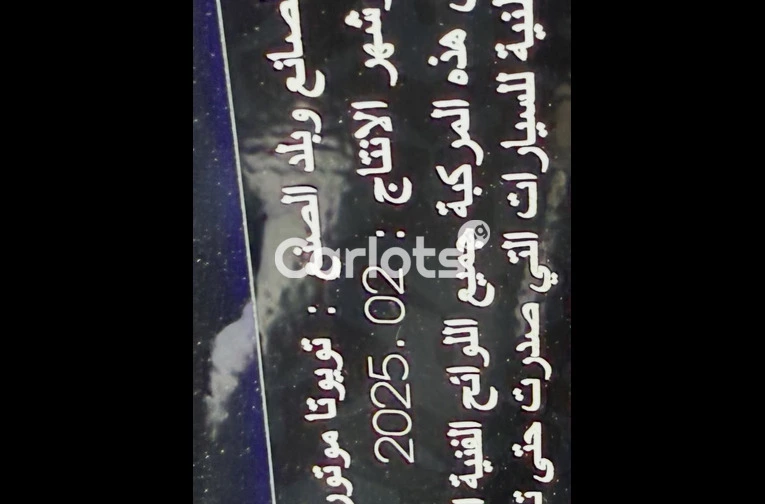 صانع وبلد الصنع : تويوتا موتور
شهر الانتاج : 2025.02
هذه المركبة جميع اللوائح الفنية
للسيارات التي صدرت حتى
Carlots